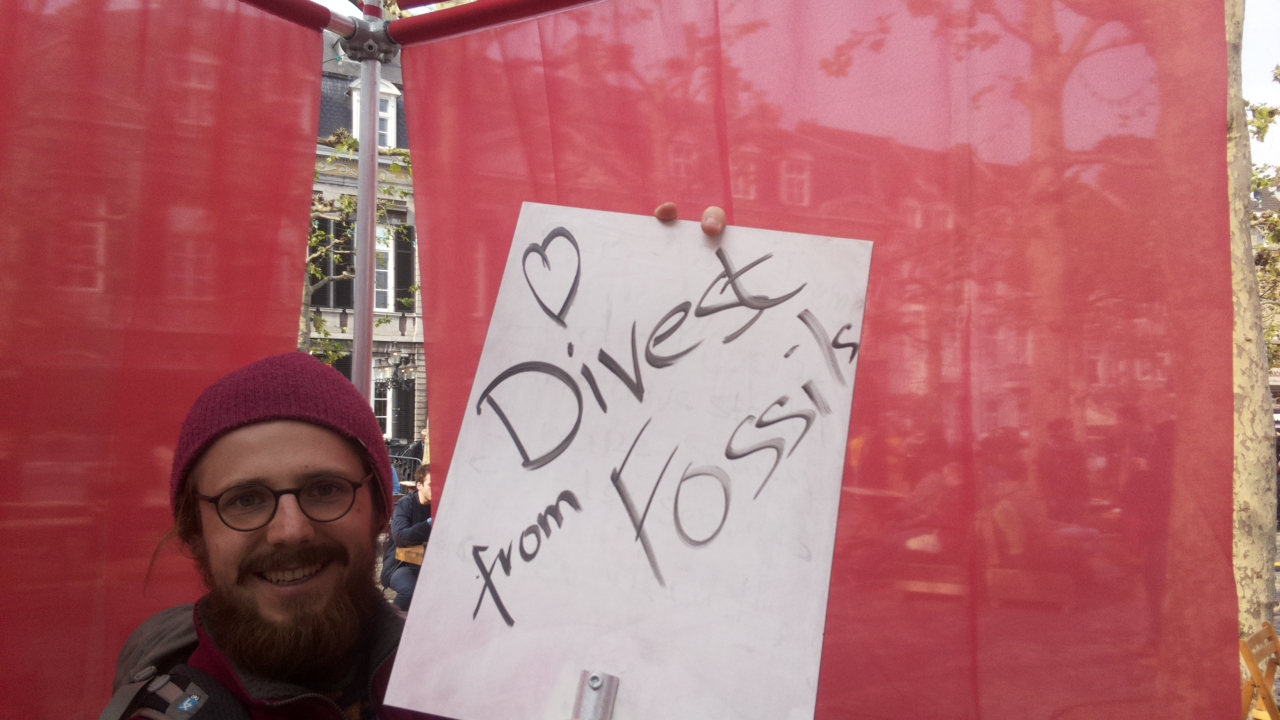 ♡
Divest
from Fossils